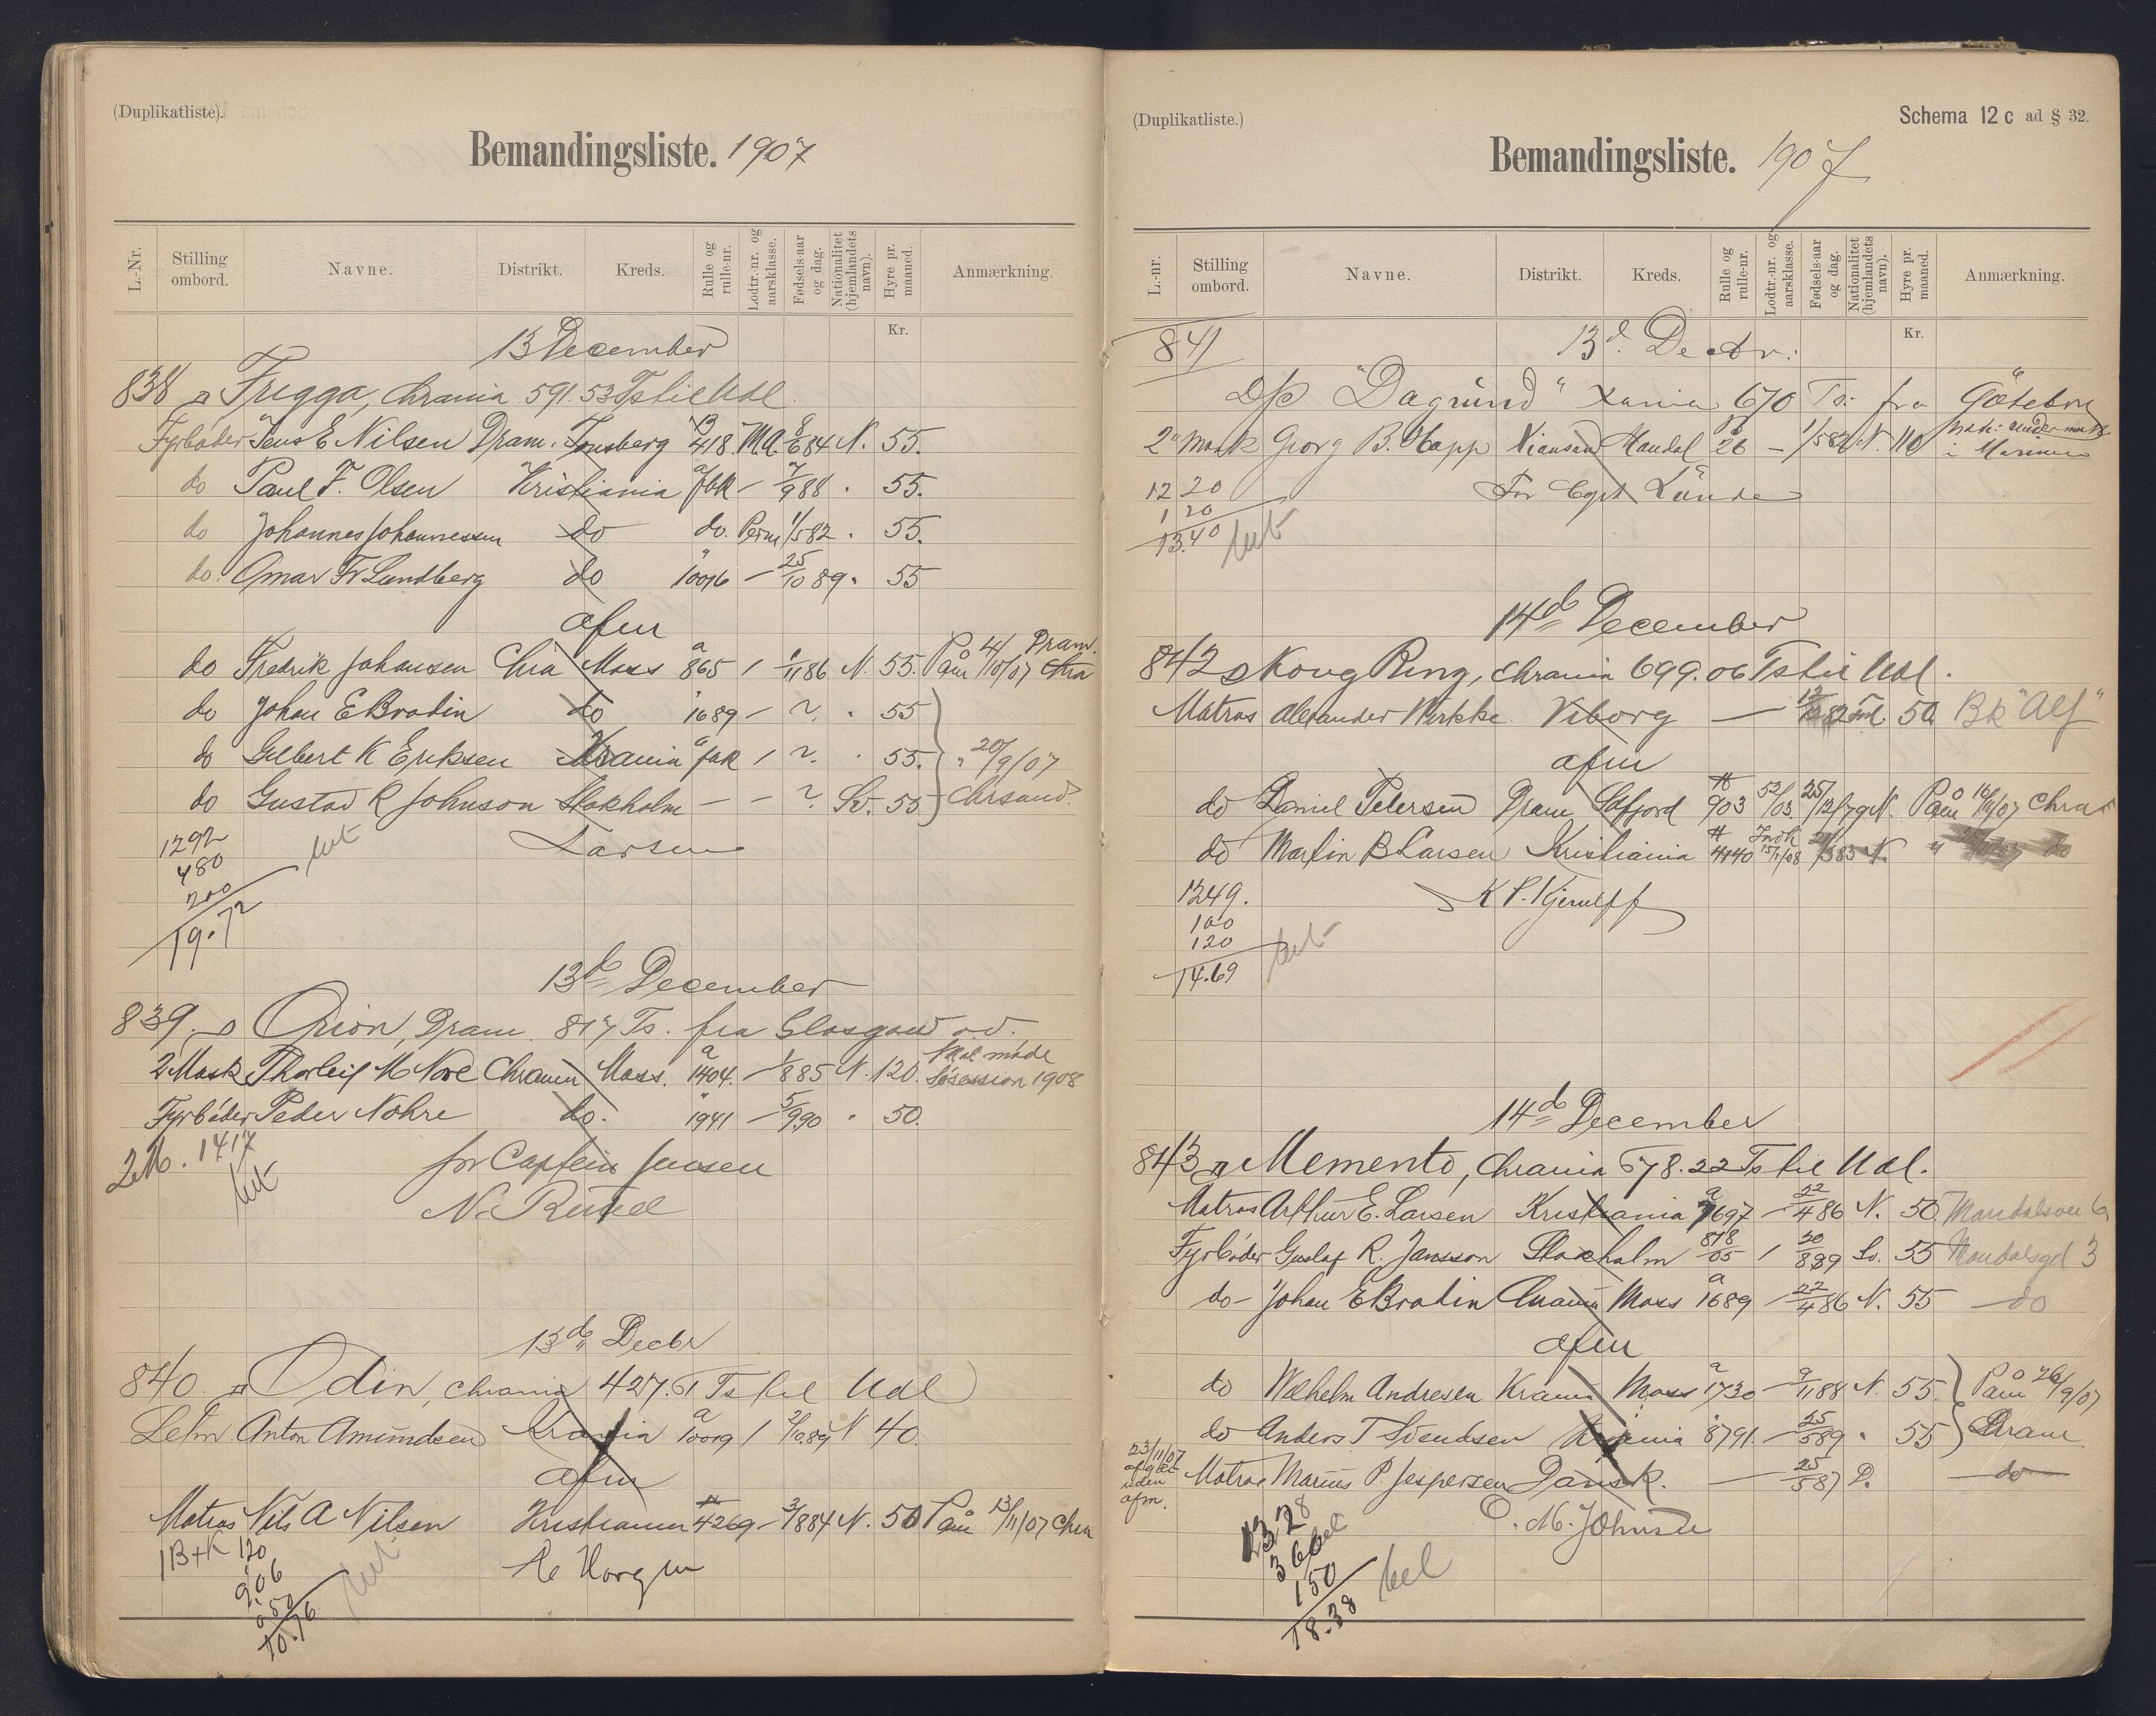 (Duplikatliste).
Bemandingsliste. 1907
L.-Nr. Stilling ombord. Navne. Distrikt. Kreds. Rulle og rulle-nr. Lodtr.-nr. og aarsklasse. Fødsels-aar og dag. Nationalitet (hjemlandets navn). Hyre pr. maaned. Anmærkning.
Kr.
13 December
838 Frigga, Chrania 591.53 Ts til Udl.
Fyrbøder Jens E Nilsen Dram. Tønsberg 418 M.A. 84 N. 55.
do Paul F. Olsen Kristiania 7/9 88 . 55.
do Johannes Johannessen do do. 1/5 82 . 55.
do. Omar Fr Lundberg do 10016 – 25/10 89 . 55
afm
do Fredrik Johansen Chria Moss a 865 / 1/11 86 N. 55. Paam 4/10/07 Dram. Chra
do Johan E Brodin do 1689 – ? . 55
do Gilbert K Eriksen Krania / ? . 55. " 20/9/07
do Gustav R Johnson Stokholm – – ? Sv. 55 Chrsand.
1292
480
200
19.72
bet
Larsen
13de December
839. Orion, Dram. 817 Ts. fra Glasgow
2 Mask Thorleif M Nore Chrania Moss. a 1404. – 1/8 85 N. 120. Skal møde Søsession 1908
Fyrbøder Peder Nohre do. " 1941 – 5/9 90 " 50.
2 M. 1417
bet
for Captein Jensen
13de Decbr
840. Odin, Chrania 427.61 Ts til Udl
Letm. Anton Amundsen Krania a 10019 / N 40.
afm
Matros Nils A Nilsen Kristiania 4269 – 3/8 84 N. 50 Paam 13/11/07 Chra
120
9.06
.50
10.76
bet
(Duplikatliste.)
Schema 12 c ad § 32.
Bemandingsliste. 1907
L.-nr. Stilling ombord. Navne. Distrikt. Kreds. Rulle og rulle-nr. Lodtr.-nr. og aarsklasse. Fødsels-aar og dag. Nationalitet (hjemlandets navn). Hyre pr. maaned. Anmærkning.
Kr.
841
13d. Decbr.
D/s "Dagrund" Xania 670 Ts. fra Göteborg
2n Mask Georg B. Happ Xiansand Mandal 26 – 1/5 82 N. 110 i Marinen
12 20
1 20
13.40
bet
For Capt Lunde
14de December
842 Kong Ring, Chrania 699.06 Ts til Udl.
Matros Alexander Wirkke Viborg — 82 50. Bk "Alf"
afm
do Daniel Petersen Dram 903 52/03 25/12/79 N. Paam 16/11/07 Chra
do Martin B Larsen Kristiania 4140 15/1/08 N. "
1249.
100
120
14.69
bet
K P. Kjerulff
14de December
843 Memento, Chrania 578.22 Ts til Udl.
Matros Arthur E. Larsen Kristiania a 7697 – 22/4 86 N. 50 Mandalsvei 6
Fyrbøder Gustaf R. Jansson Stokholm 818/05 / 20/8 89 Sv. 55 Mandalsgd 3
do – Johan E Brodin Chrania Moss a 1689 – 22/4 86 N. 55 – do
afm
do Wilhelm Andresen Krania Moss a 1730 – 9/11 88 N. 55. Paam 26/9/07
do Anders T Svendsen Krania " 8791 – 25/5 89 " 55 Dram.
23/11/07
uden
afm.
Matros Marius P. Jespersen Dansk. — 25/5 87 D. do
1328
360
150
18.38
bet
O. M. Johnsen